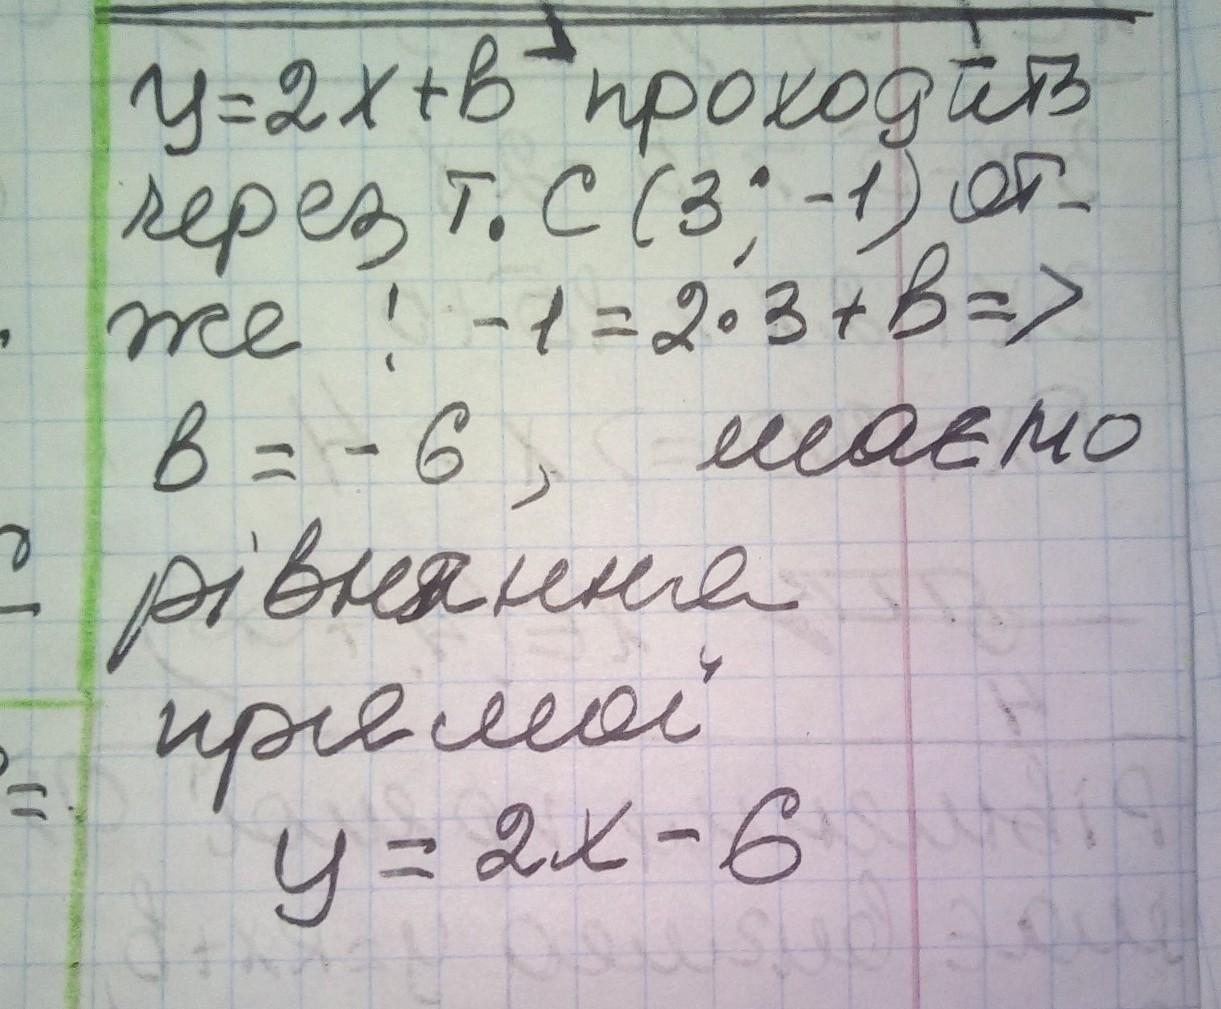 y=2x+b проходить
через т. С (3; -1) от-
же! -1=2•3+b=>
b = - 6, маємо
рівняння
прямої
y = 2x - 6